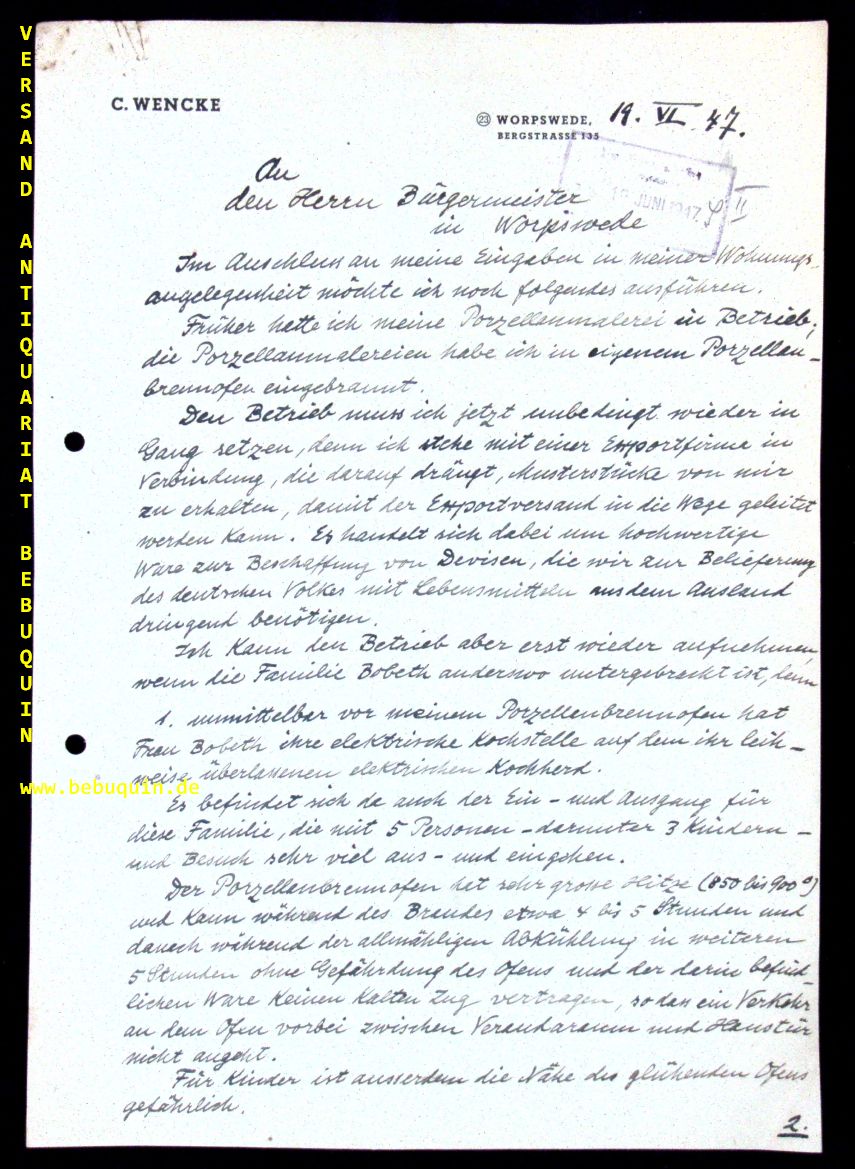 VERSAND ANTIQUARIAT BEBUQUIN
www.bebuquin.de
C. WENCKE
23 WORPSWEDE, 19. VI. 47.
BERGSTRASSE 135
JUNI 1947
II
An
den Herrn Bürgermeister
in Worpswede
Im Anschluss an meine Eingaben in meiner Wohnungs-
angelegenheit möchte ich noch folgendes ausführen.
Früher hatte ich meine Porzellanmalerei in Betrieb;
die Porzellanmalereien habe ich in eigenem Porzellan-
brennofen eingebrannt.
Den Betrieb muss ich jetzt unbedingt wieder in
Gang setzen, denn ich stehe mit einer Exportfirma in
Verbindung, die darauf drängt, Musterstücke von mir
zu erhalten, damit der Exportversand in die Wege geleitet
werden kann. Es handelt sich dabei um hochwertige
Ware zur Beschaffung von Devisen, die wir zur Belieferung
des deutschen Volkes mit Lebensmitteln aus dem Ausland
dringend benötigen.
Ich kann den Betrieb aber erst wieder aufnehmen,
wenn die Familie Bobeth anderswo untergebracht ist, denn
1. unmittelbar vor meinem Porzellanbrennofen hat
Frau Bobeth ihre elektrische Kochstelle auf dem ihr leih-
weise überlassenen elektrischen Kochherd.
Es befindet sich da auch der Ein- und Ausgang für
diese Familie, die mit 5 Personen - darunter 3 Kindern -
und Besuch sehr viel aus- und eingehen.
Der Porzellanbrennofen hat sehr grosse Hitze (850 bis 900°)
und kann während des Brandes etwa 4 bis 5 Stunden und
danach während der allmähligen Abkühlung in weiteren
5 Stunden ohne Gefährdung des Ofens und der darin befind-
lichen Ware keinen kalten Zug vertragen, so dass ein Verkehr
an dem Ofen vorbei zwischen Verandaraum und Haustür
nicht angeht.
Für Kinder ist ausserdem die Nähe des glühenden Ofens
gefährlich.
2.